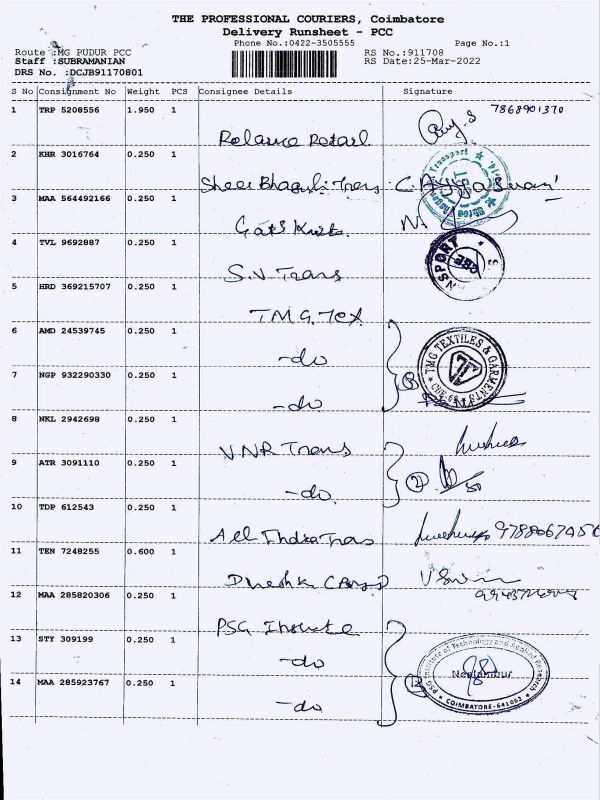 THE PROFESSIONAL COURIERS, Coimbatore
Delivery Runsheet - PCC
Phone No.:0422-3505555 Page No.:1
Route :MG PUDUR PCC RS No.:911708
Staff :SUBRAMANIAN RS Date:25-Mar-2022
DRS No. :DCJB91170801
S No Consignment No Weight PCS Consignee Details Signature
1 TRP 5208556 1.950 1 7868901370
Retail
2 KHR 3016764 0.250 1 Transport
Trans
3 MAA 564492166 0.250 1
4 TVL 9692887 0.250 1 CBE
S.V Trans
5 HRD 369215707 0.250 1
TMG. Tex
6 AMD 24539745 0.250 1 TMG TEXTILES & GARMENTS
-do
7 NGP 932290330 0.250 1
-do
8 NKL 2942698 0.250 1
VNR Trans
9 ATR 3091110 0.250 1
-do
10 TDP 612543 0.250 1
All India Trans
11 TEN 7248255 0.600 1
12 MAA 285820306 0.250 1
PSG Institute
13 STY 309199 0.250 1 PSG Institute of Technology and Applied Research
-do Neelambur
14 MAA 285923767 0.250 1 COIMBATORE-641062
-do